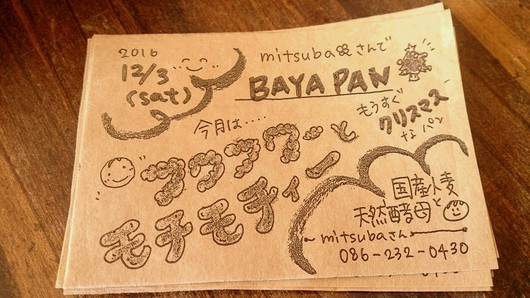 2016
12/3
(sat)
mitsubaさんで
BAYA PAN
もうすぐ
クリスマス
なパン
今月は‥‥
フワフワーと
モチモチィー
国産小麦と
天然酵母
mitsubaさん
086-232-0430